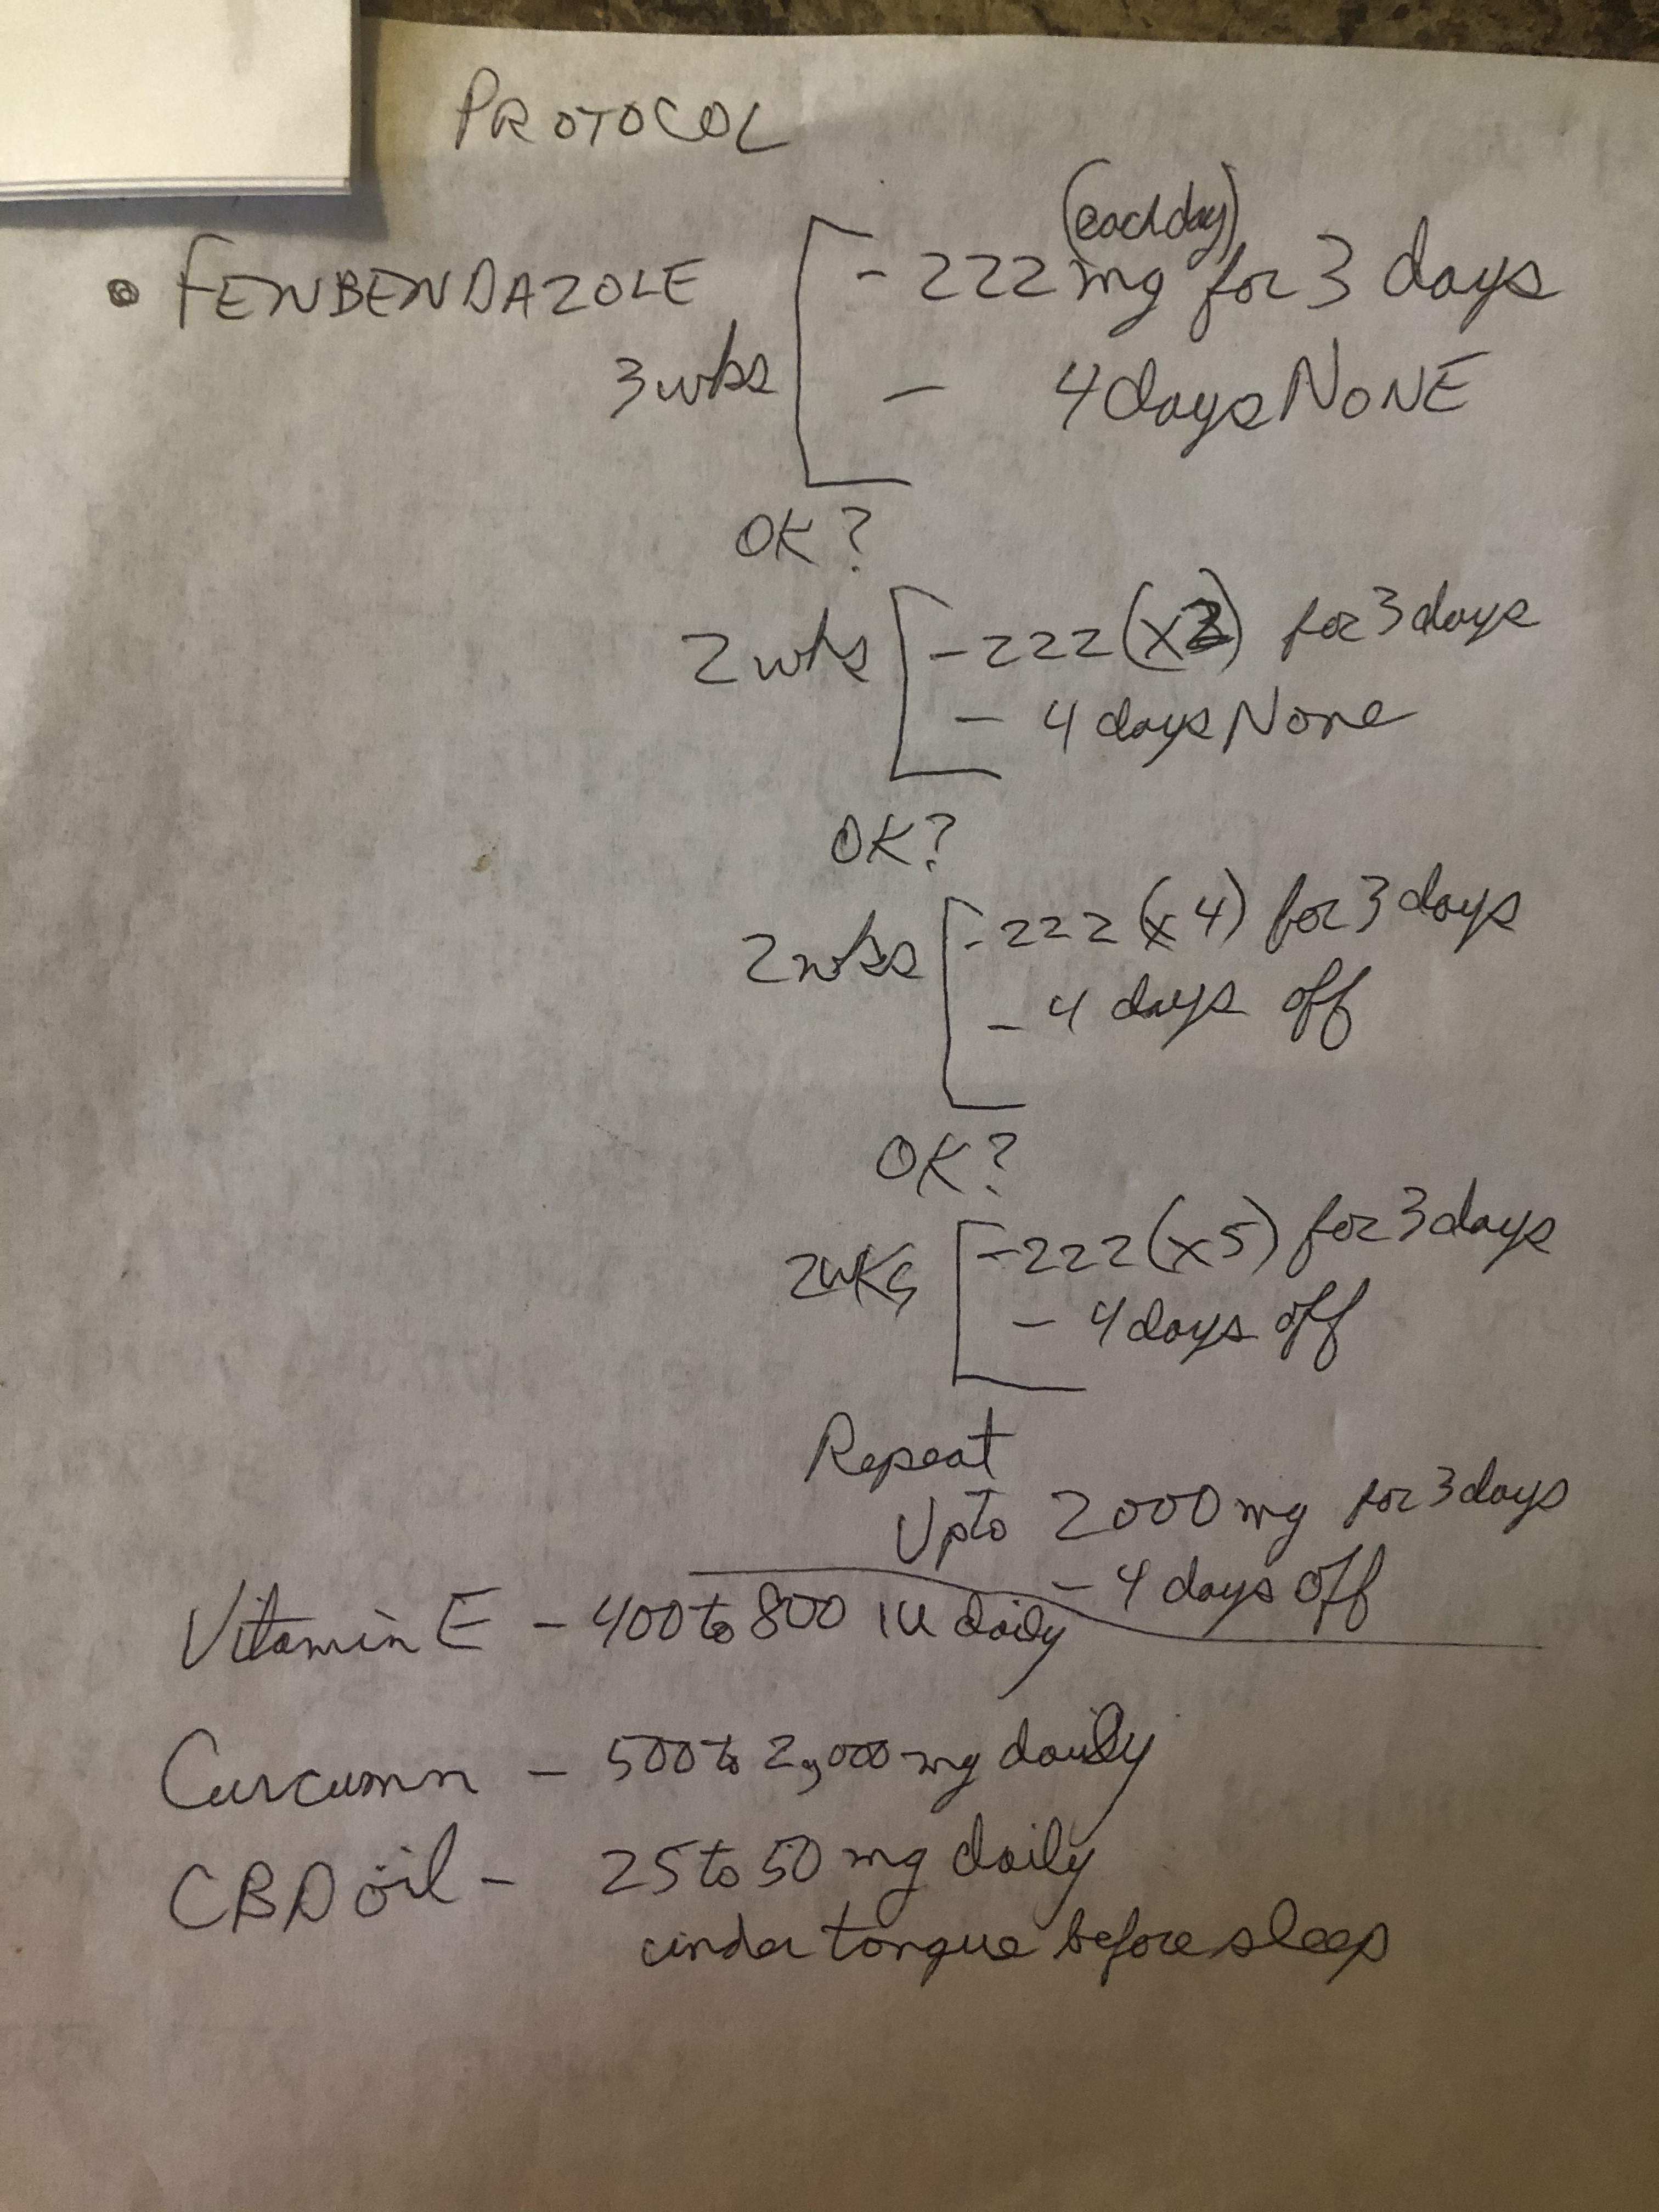 PROTOCOL
(each day)
• FENBENDAZOLE - 222 mg for 3 days
3 wks - 4 days NONE
OK?
2 wks - 222 (x ) for 3 days
- 4 days None
OK?
2 wks - 222 (x 4) for 3 days
- 4 days off
OK?
2 wks - 222 (x 5) for 3 days
- 4 days off
Repeat
Up to 2000 mg for 3 days
- 4 days off
Vitamin E - 400 to 800 IU daily
Curcumin - 500 to 2,000 mg daily
CBD oil - 25 to 50 mg daily
under tongue before sleep